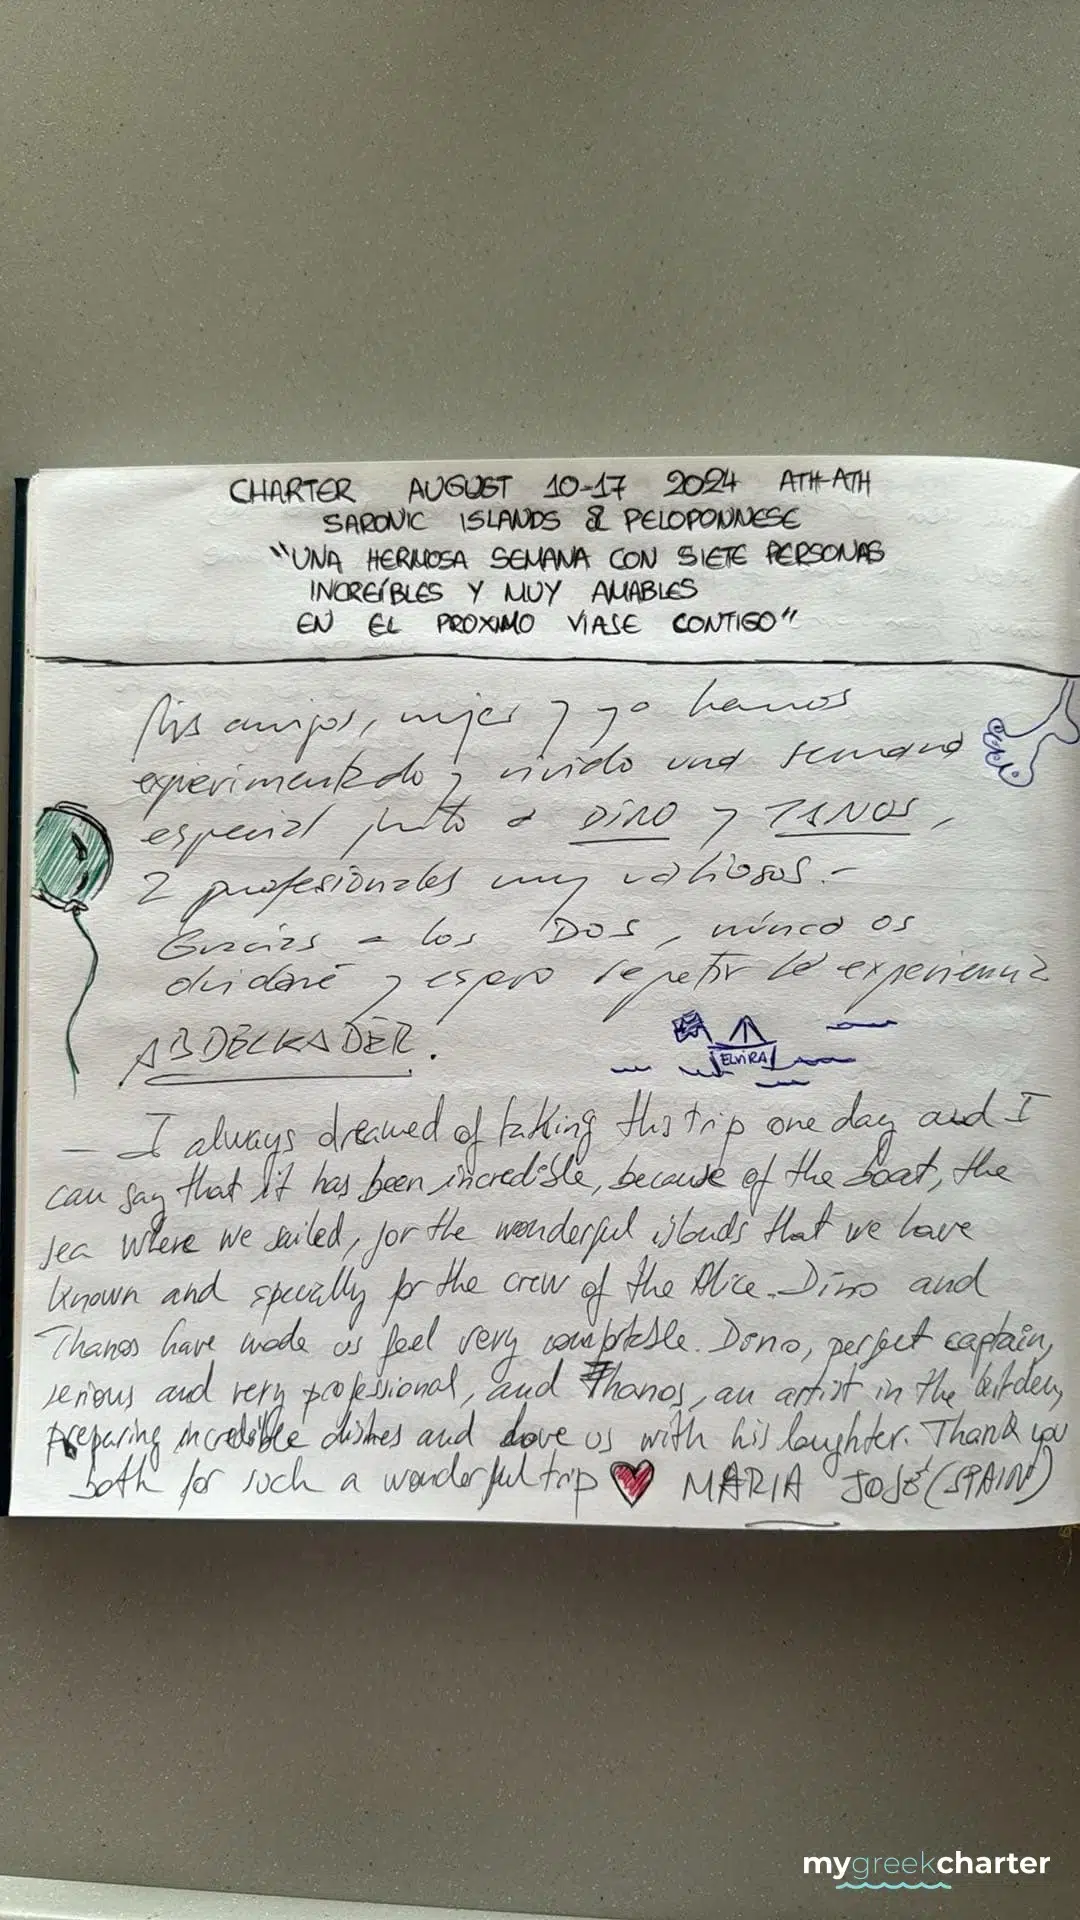 CHARTER AUGUST 10-17 2024 ATH-ATH
SARONIC ISLANDS & PELOPONNESE
"UNA HERMOSA SEMANA CON SIETE PERSONAS
INCREÍBLES Y MUY AMABLES
EN EL PROXIMO VIASE CONTIGO"
Mis amigos, mujer y yo hemos
experimentado y vivido una semana
especial junto a DINO y TANOS,
2 profesionales muy valiosos.-
Gracias a los DOS, nunca os
olvidaré y espero repetir la experiencia
ABDELKADER.
ELVIRA
— I always dreamed of taking this trip one day and I
can say that it has been incredible, because of the boat, the
sea where we sailed, for the wonderful islands that we have
known and specially for the crew of the Alice. Dino and
Thanos have made us feel very comfortable. Dino, perfect captain,
serious and very professional, and Thanos, an artist in the
preparing incredible dishes and us with his laughter. Thank you
both for such a wonderful trip MARIA JOSÉ (SPAIN)
mygreekcharter